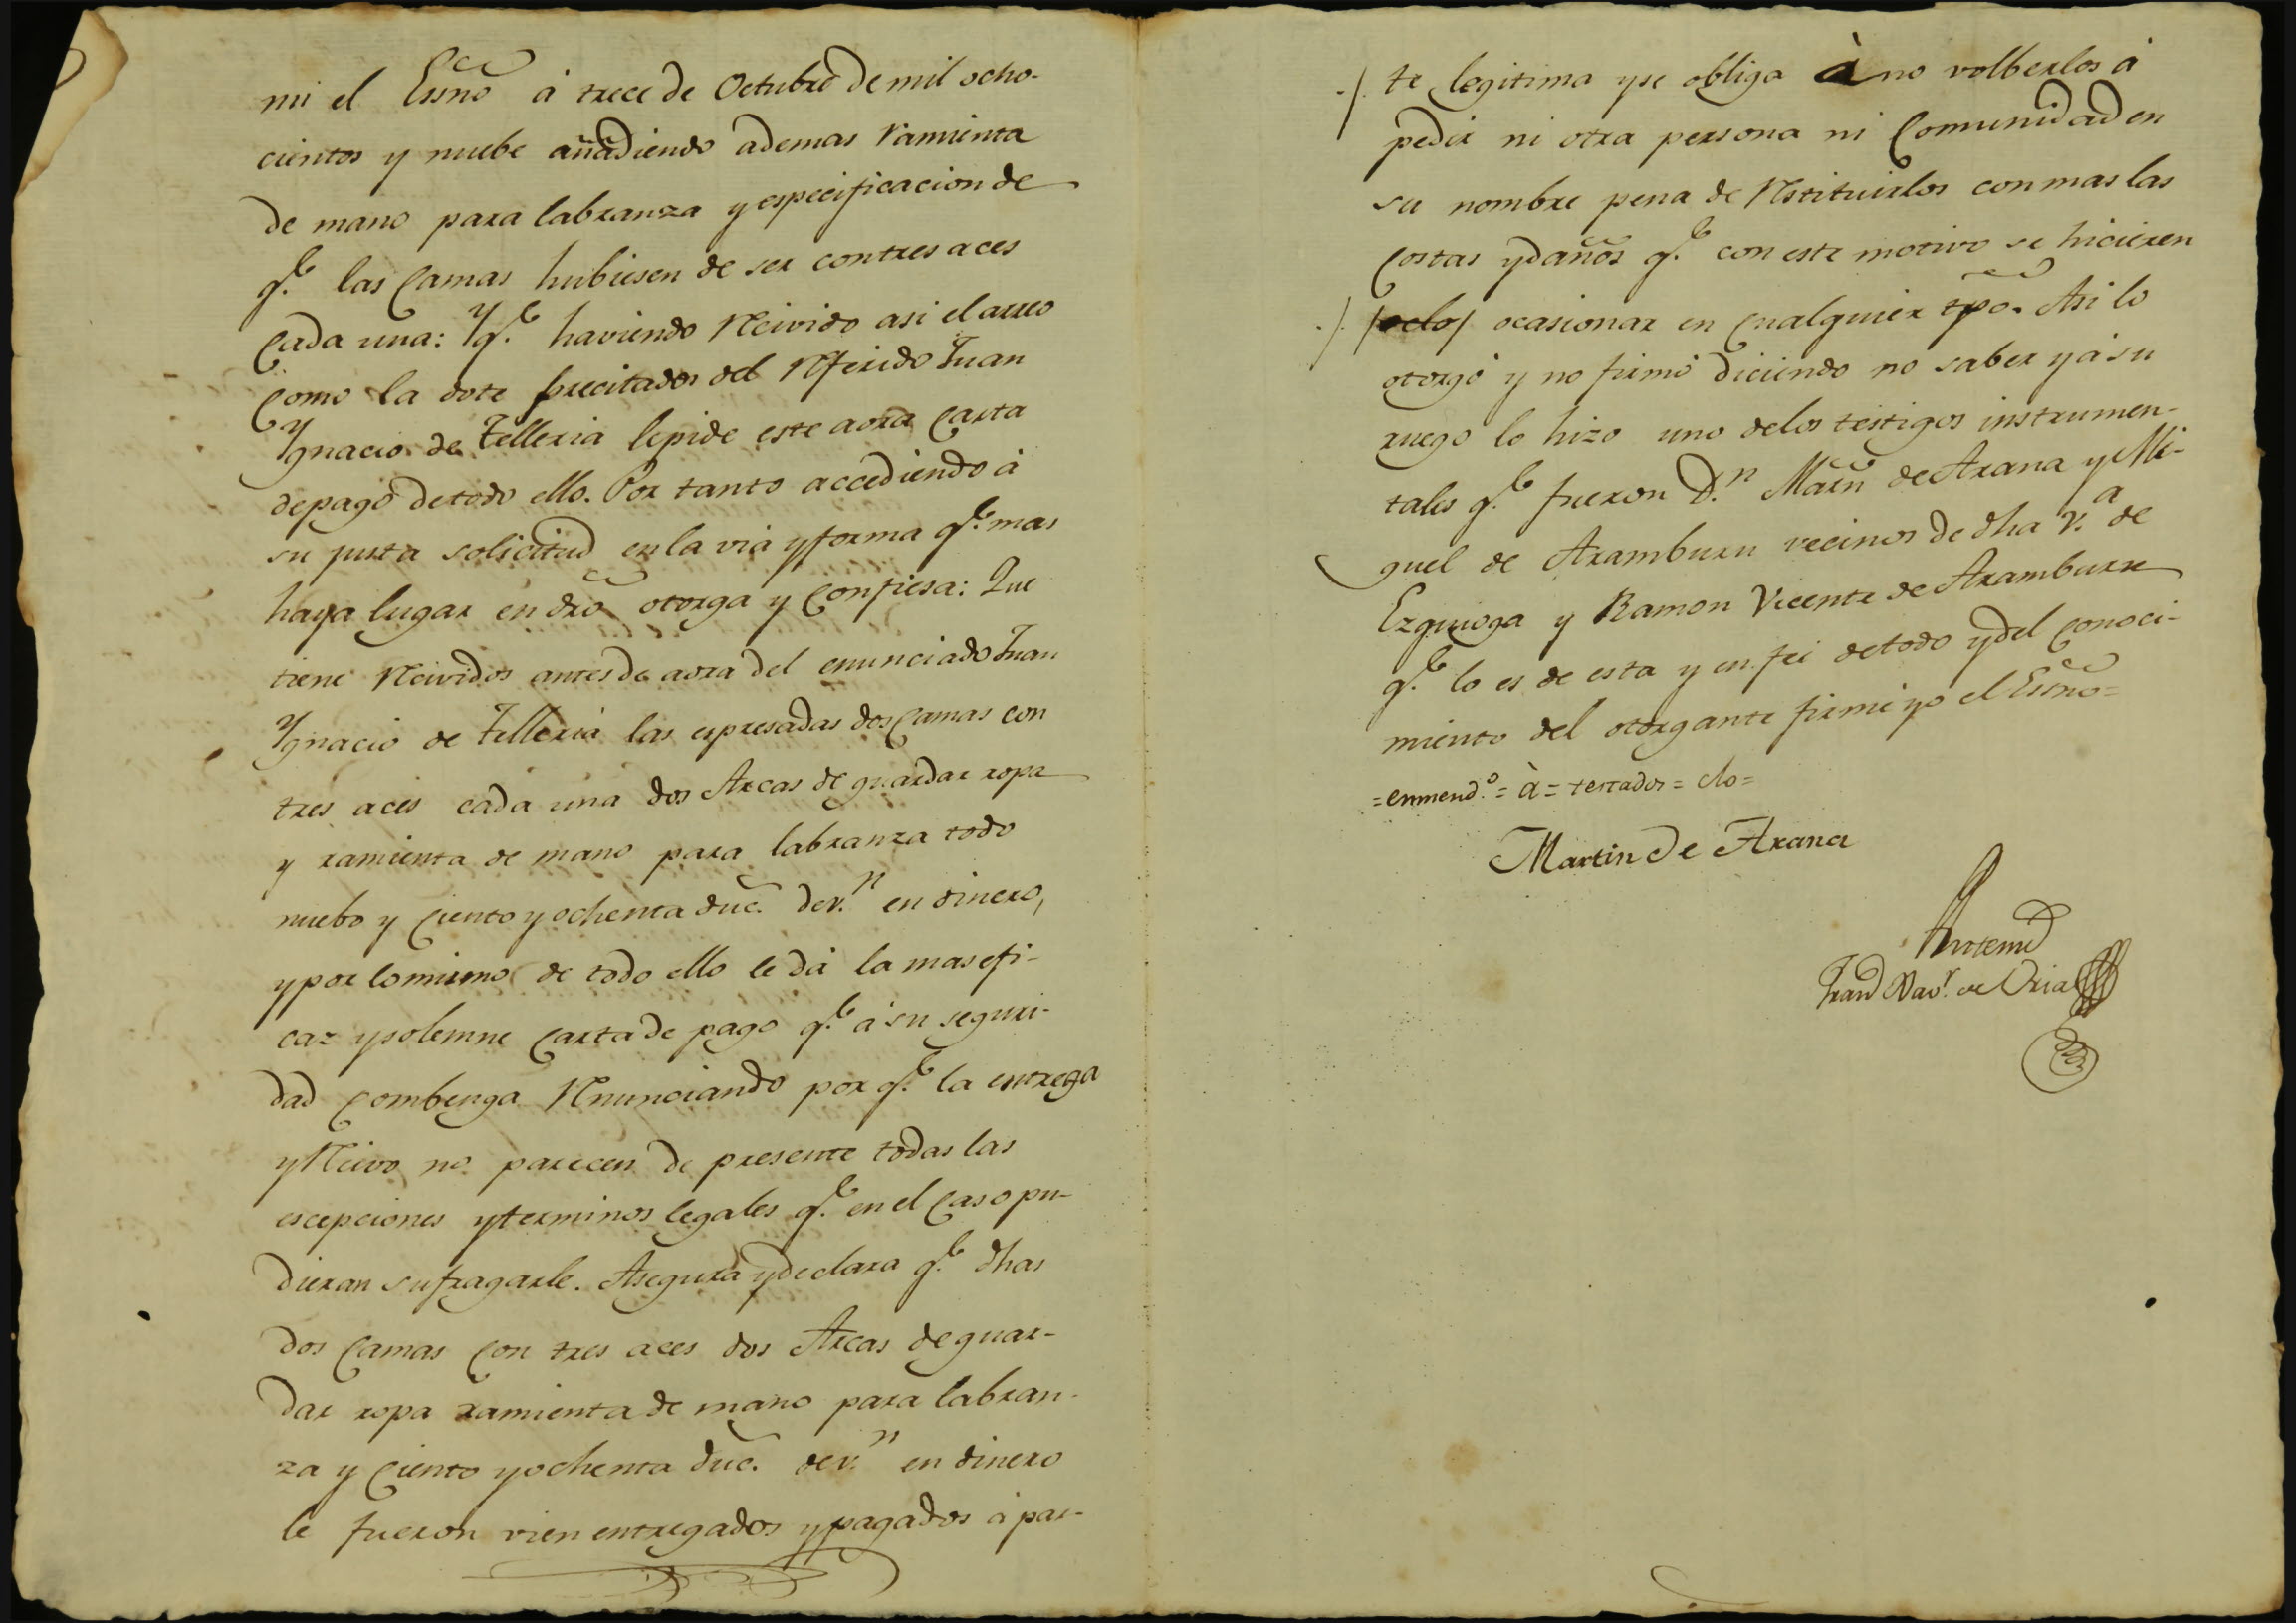 mi el Essño à trece de Octubre de mil ocho-
cientos y nuebe añadiendo ademas ramienta
de mano para labranza y especificacion de
q.e las camas hubiesen de ser con tres aces
cada una: Y q.e haviendo recivido asi el arreo
como la dote precitados del referido Juan
Ygnacio de Telleria le pide este aora carta
de pago de todo ello. Por tanto accediendo à
su justa solicitud en la via y forma q.e mas
haya lugar en dro otorga y confiesa: Que
tiene recividos antes de aora del enunciado Juan
Ygnacio de Telleria las espresadas dos camas con
tres aces cada una dos Arcas de guardar ropa
y ramienta de mano para labranza todo
nuebo y ciento y ochenta duc. de v.n en dinero,
y por lo mismo de todo ello le dà la mas efi-
caz y solemne carta de pago q.e à su seguri-
dad combenga renunciando por q.e la entrega
y recivo no parecen de presente todas las
escepciones y terminos legales q.e en el caso pu-
dieran sufragarle. Asegura y declara q.e dhas
dos camas con tres aces dos Arcas de guar-
dar ropa ramienta de mano para labran-
za y ciento y ochenta duc. de v.n en dinero
le fueron vien entregados y pagados à par-
te legitima y se obliga à no volberlos à
pedir ni otra persona ni Comunidad en
su nombre pena de restituirlos con mas las
costas y daños q.e con este motivo se hicieren
ocasionar en cualquier tpo. Asi lo
otorgó y no firmó diciendo no saber y à su
ruego lo hizo uno de los testigos instrumen-
tales q.e fueron D.n Marñ de Arana y Mi-
guel de Aramburu vecinos de dha v.a de
Ezquioga y Ramon Vicente de Aramburu
q.e lo es de esta y en fei de todo y del conoci-
miento del otorgante firmé yo el Essño=
=enmend.o= à = testados = elo=
Martin de Arana
Antemi
Fran.co Xav.r de Oria